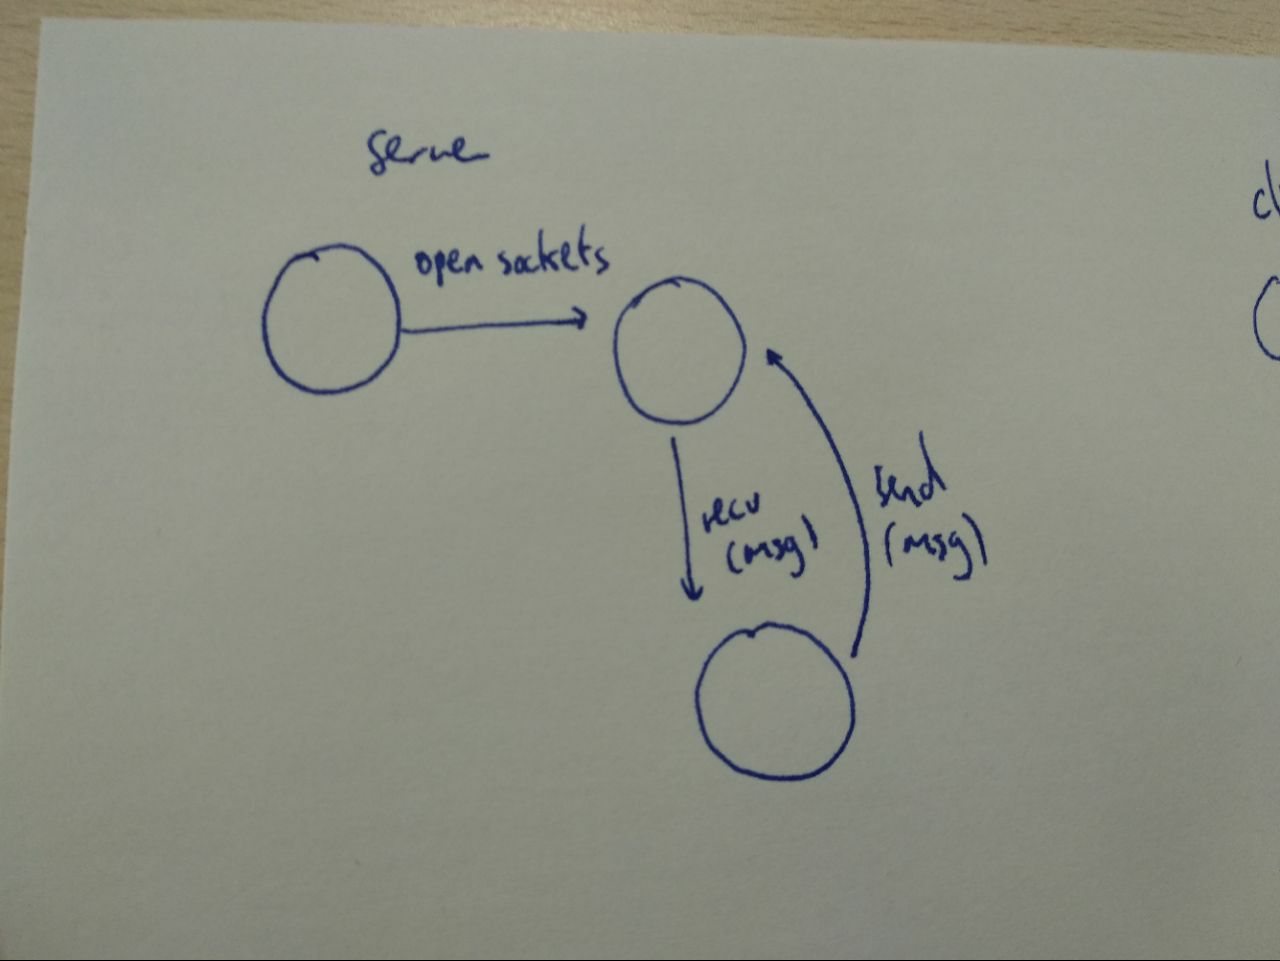 server
open sockets
recv
(msg)
send
(msg)